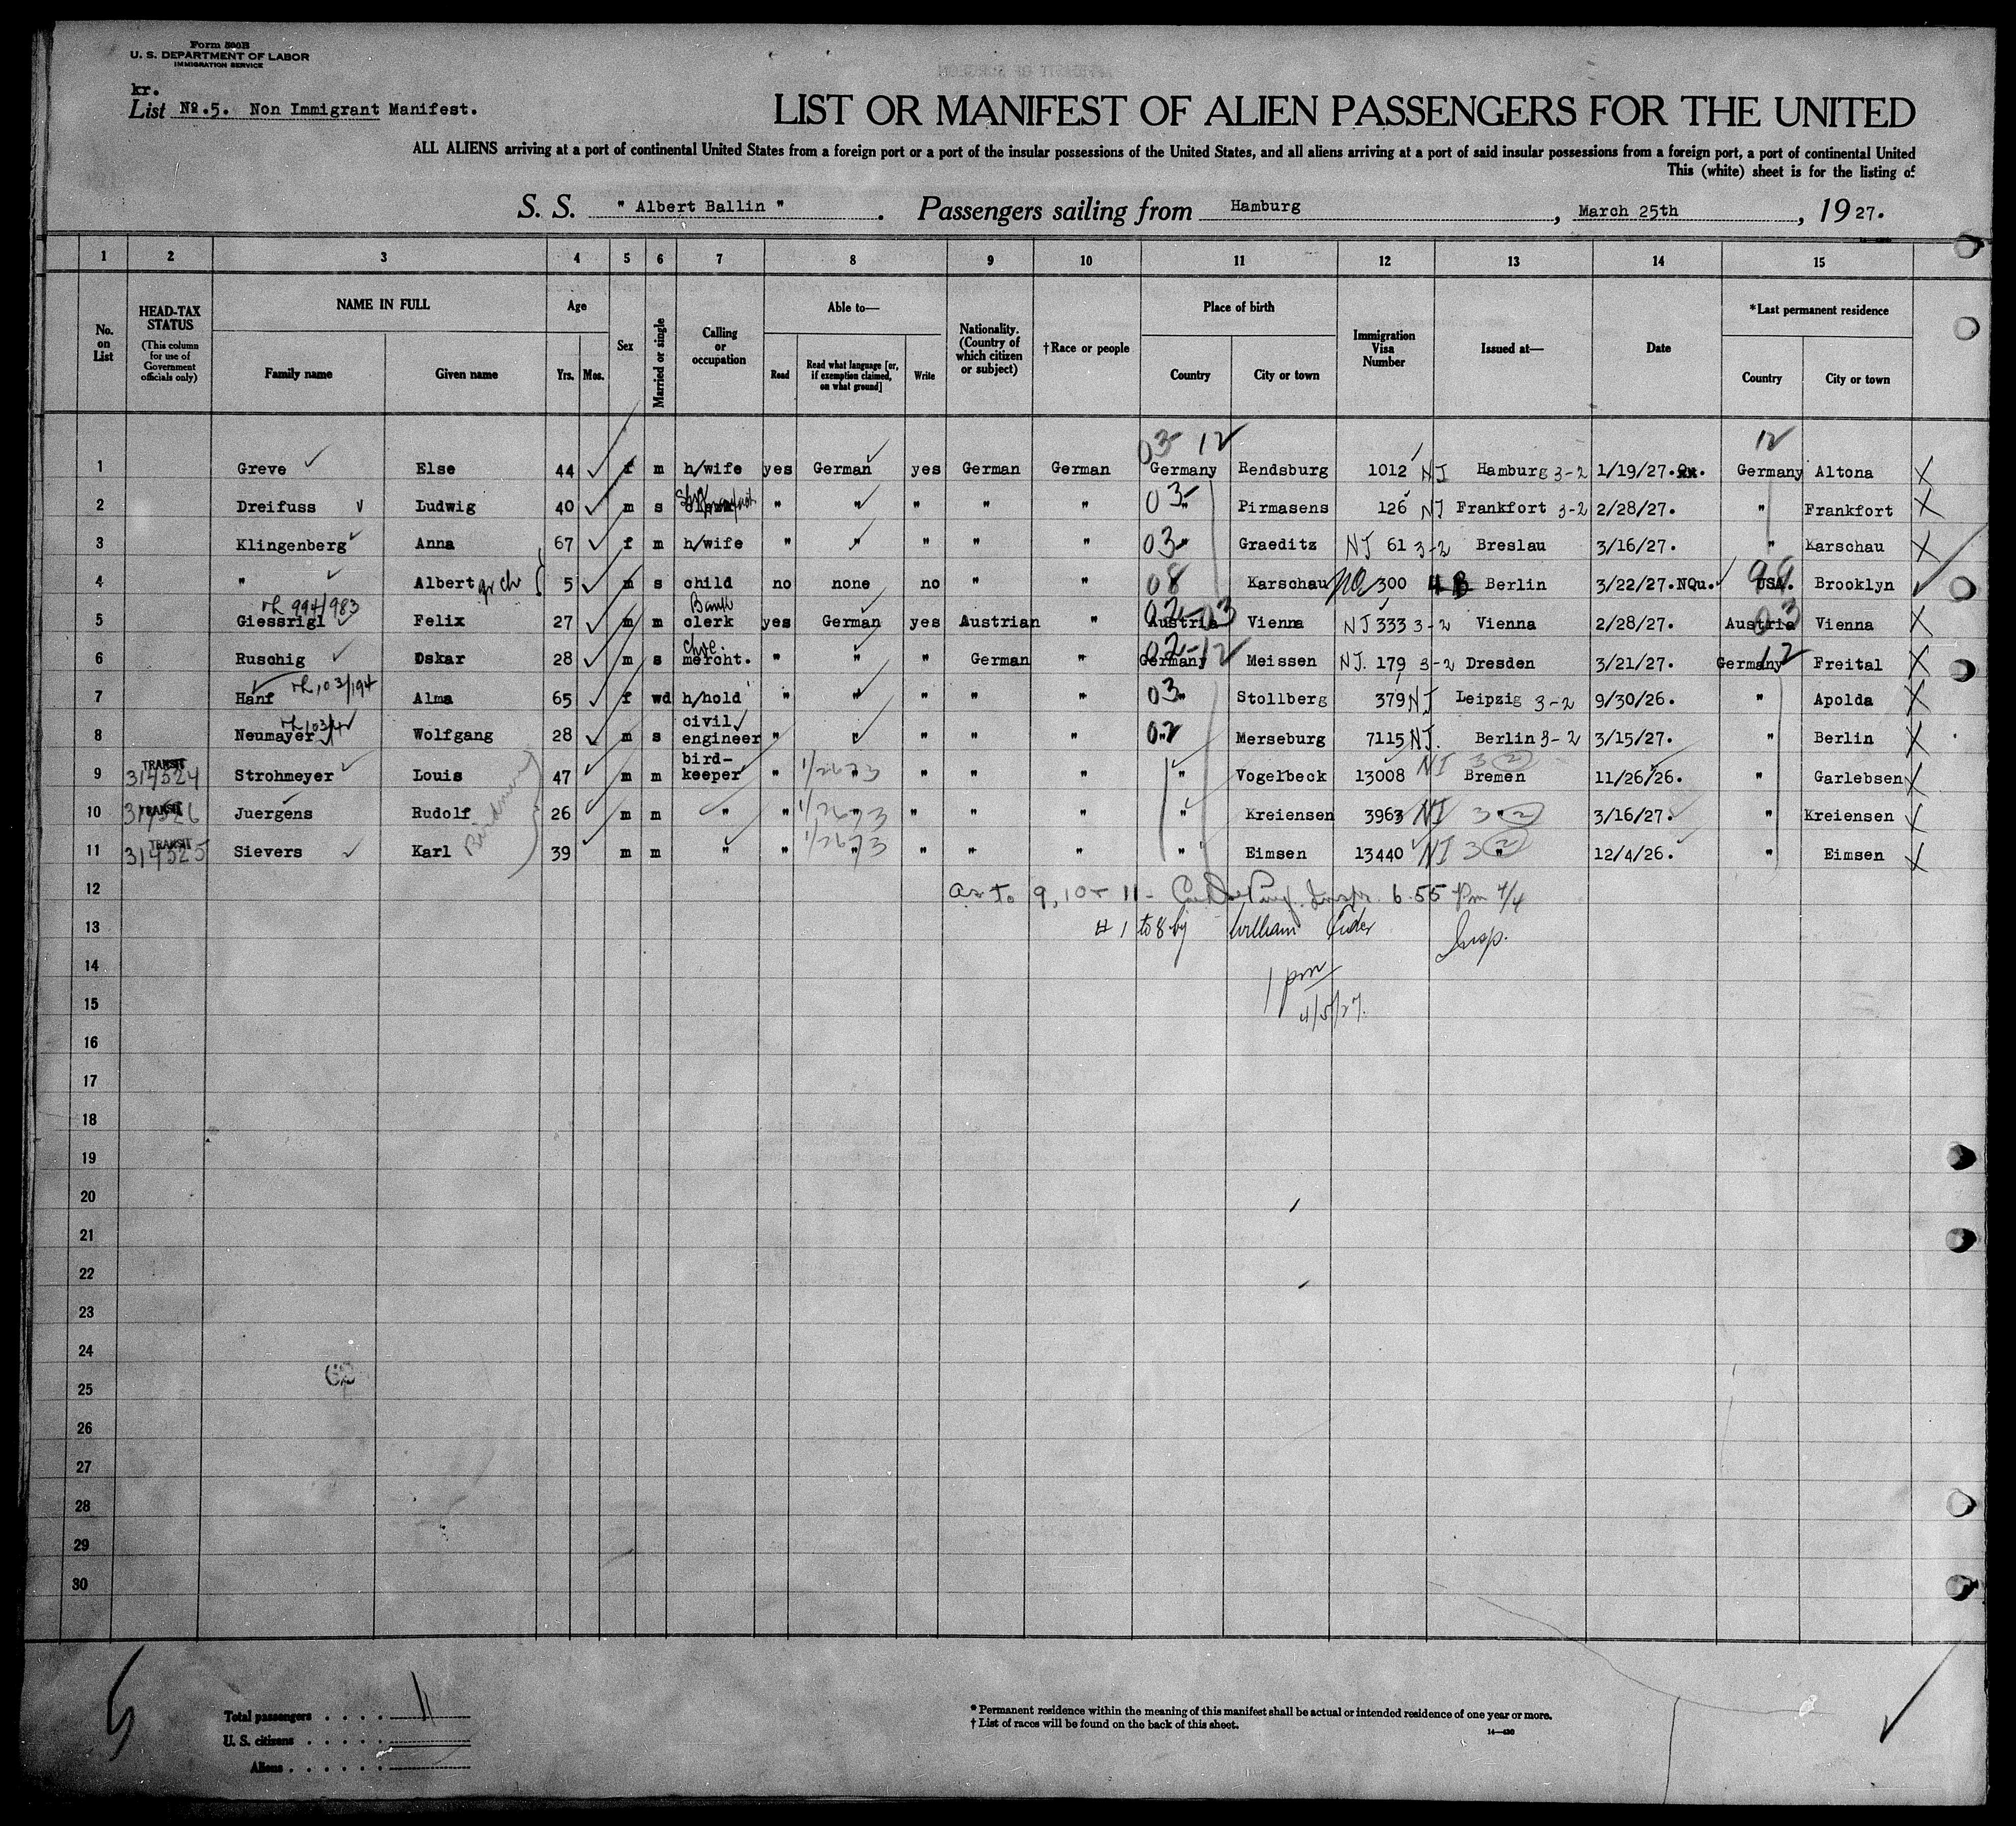 Form 500B
U. S. DEPARTMENT OF LABOR
IMMIGRATION SERVICE
kr.
List No.5. Non Immigrant Manifest.
LIST OR MANIFEST OF ALIEN PASSENGERS FOR THE UNITED
ALL ALIENS arriving at a port of continental United States from a foreign port or a port of the insular possessions of the United States, and all aliens arriving at a port of said insular possessions from a foreign port, a port of continental United
This (white) sheet is for the listing of
S. S. " Albert Ballin ". Passengers sailing from Hamburg, March 25th, 1927.
1 2 3 4 5 6 7 8 9 10 11 12 13 14 15
No. on List
HEAD-TAX STATUS
(This column for use of Government officials only)
NAME IN FULL
Family name Given name
Age
Yrs. Mos.
Sex
Married or single
Calling or occupation
Able to—
Read
Read what language [or, if exemption claimed, on what ground]
Write
Nationality. (Country of which citizen or subject)
†Race or people
Place of birth
Country City or town
Immigration Visa Number
Issued at—
Date
*Last permanent residence
Country City or town
03 12 12
1 Greve Else 44 f m h/wife yes German yes German German Germany Rendsburg 1012 NJ Hamburg 3-2 1/19/27. Germany Altona X
2 Dreifuss Ludwig 40 m s " " " " " 03 " Pirmasens 126 NJ Frankfort 3-2 2/28/27. " Frankfort X
3 Klingenberg Anna 67 f m h/wife " " " " " 03 " Graeditz NJ 61 3-2 Breslau 3/16/27. " Karschau X
4 " Albert gr ch 5 m s child no none no " " 08 Karschau 300 4 B Berlin 3/22/27.NQu. 99 USA. Brooklyn
994/983 Bank 02-03 03
5 Giessrigl Felix 27 m m clerk yes German yes Austrian " Austria Vienna NJ 333 3-2 Vienna 2/28/27. Austria Vienna X
02-12 12
6 Ruschig Oskar 28 m s mercht. " " " German " Germany Meissen NJ. 179 3-2 Dresden 3/21/27. Germany Freital X
103/194
7 Hanf Alma 65 f wd h/hold " " " " " 03 " Stollberg 379 NJ Leipzig 3-2 9/30/26. " Apolda X
civil
8 Neumayer Wolfgang 28 m s engineer " " " " " 02 " Merseburg 7115 NJ. Berlin 3-2 3/15/27. " Berlin X
TRANSIT bird-
9 314524 Strohmeyer Louis 47 m m keeper " " " " " " Vogelbeck 13008 NJ 3 2 Bremen 11/26/26. " Garlebsen X
TRANSIT
10 314526 Juergens Rudolf 26 m m " " " " " " " Kreiensen 3963 NJ 3 2 " 3/16/27. " Kreiensen X
TRANSIT
11 314525 Sievers Karl 39 m m " " " " " " " Eimsen 13440 NJ 3 2 " 12/4/26. " Eimsen X
12 as to 9, 10 + 11 - Insp. 6.55 Pm 4/4
13 # 1 to 8 by William Insp.
14 1 pm
15 4/5/27.
16
17
18
19
20
21
22
23
24
25
26
27
28
29
30
Total passengers . . . . 11
U. S. citizens . . . . .
Aliens . . . . . .
* Permanent residence within the meaning of this manifest shall be actual or intended residence of one year or more.
† List of races will be found on the back of this sheet.
14—430